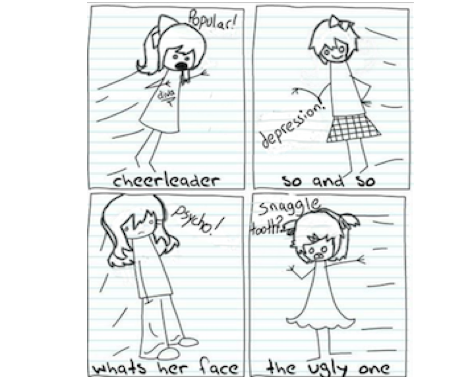 Popular!
diva
cheerleader
depression!
so and so
psycho!
whats her face
snaggle
tooth?
the ugly one